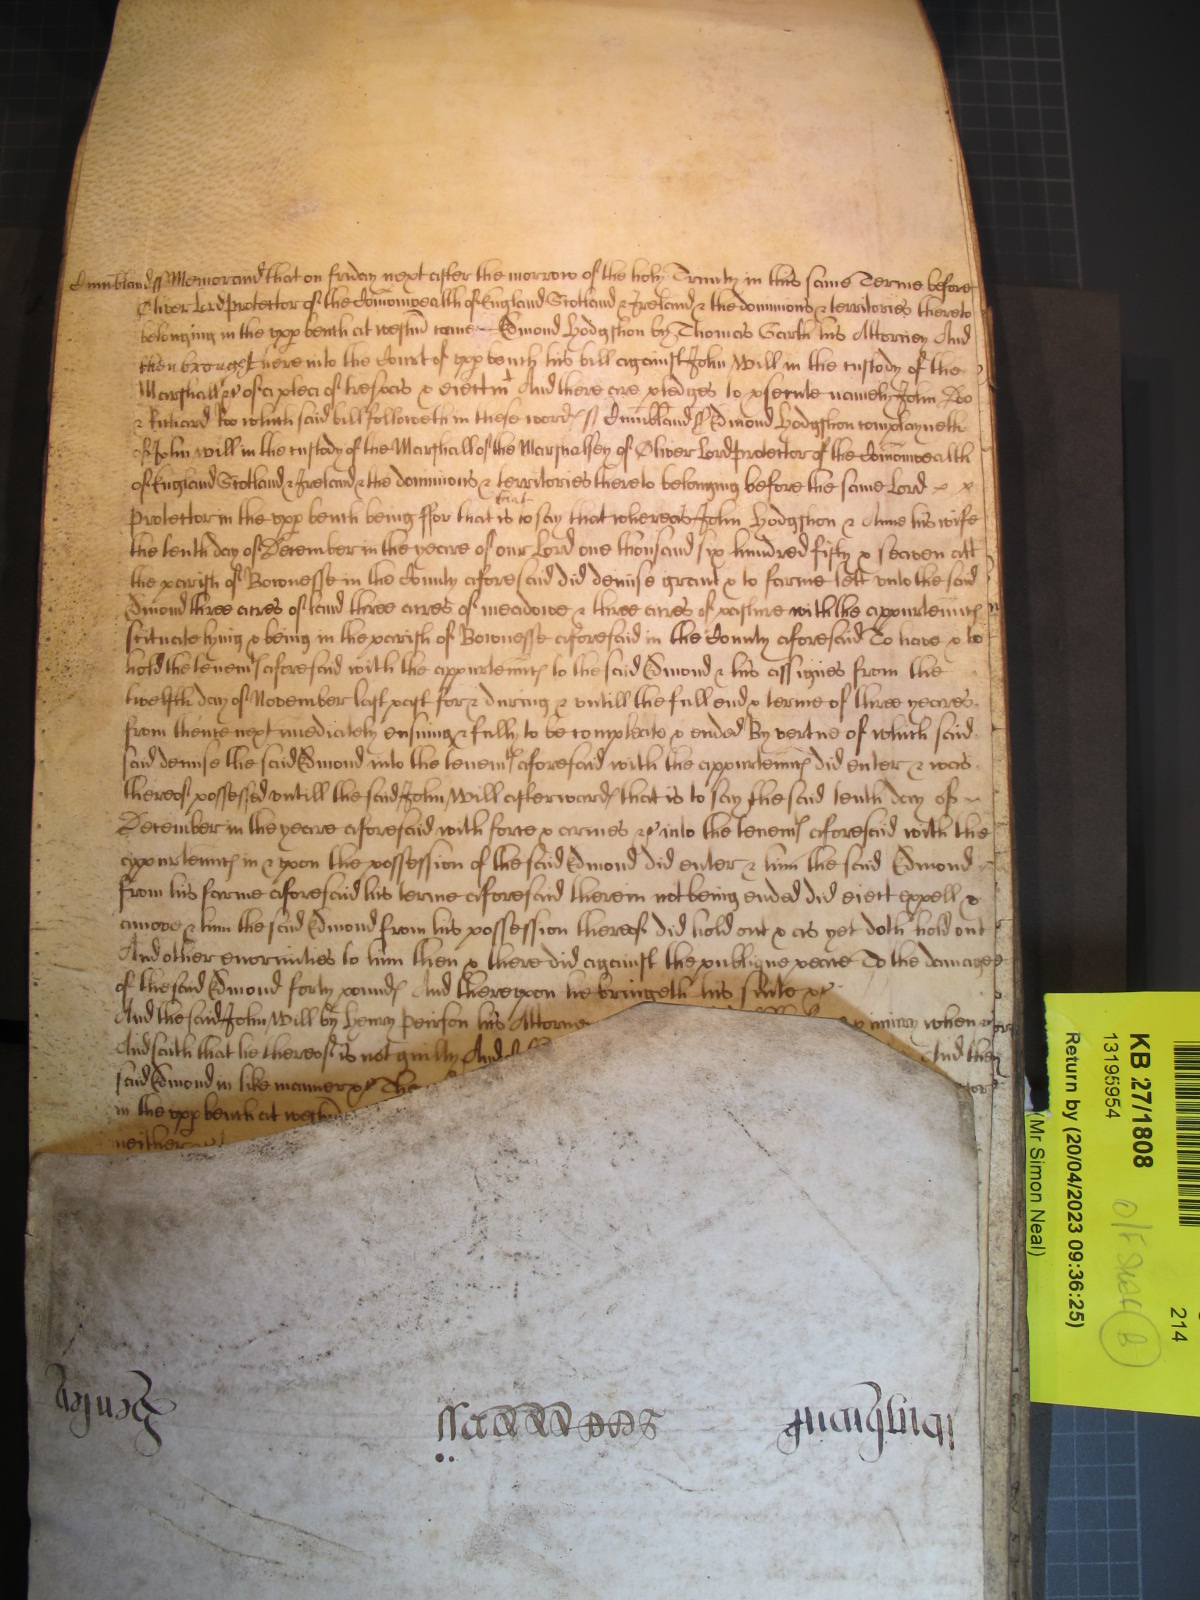 Cumbland ss Memorand that on Friday next after the morrow of the holy Trinity in this same Terme before
Oliver Lord Protector of the Comonwealth of England Scotland & Ireland & the dominions & territories thereto
belonging in the upp bench at westm came Edmond Hodgshon by Thomas Garth his Attorney And
then brought here into the Court of upp bench his bill against John Will in the custody of the
Marshall &c of a plea of trespas & eiectm And there are pledges to psecute namely John Doo
& Richard Roo which said bill followeth in these word ss Cumbland ss Edmond Hodgshon complayneth
of John Will in the custody of the Marshall of the Marshalsey of Oliver Lord Protector of the Comonwealth
of England Scotland & Ireland & the dominions & territories thereto belonging before the same Lord
Protector in the upp bench being ffor that is to say that whereas John Hodgshon & Anne his wife
that
the tenth day of December in the yeare of our Lord one thousand six hundred fifty & seaven att
the parish of Bownesse in the County aforesaid did demise grant & to farme lett unto the said
Edmond three acres of land three acres of meadowe & three acres of pasture with the appurtennc
scituate lying & being in the parish of Bownesse aforesaid in the County aforesaid To have & to
hold the tenemt aforesaid with the appurtennc to the said Edmond & his assignes from the
twelfth day of November last past for & during & untill the full end & terme of three yeares
from thence next imediately ensuing & fully to be compleate & ended By vertue of which said
said demise the said Edmond into the tenemt aforesaid with the appurtennc did enter & was
thereof possessed untill the said John Will afterward that is to say the said tenth day of
December in the yeare aforesaid with force & armes &c into the tenemt aforesaid with the
appurtennc in & upon the possession of the said Edmond did enter & him the said Edmond
from his farme aforesaid his terme aforesaid therein not being ended did eiect expell &
amove & him the said Edmond from his possession thereof did hold out & as yet doth hold out
And other enormities to him then & there did against the publique peace To the damage
of the said Edmond forty pound And thereupon he bringeth his suite &c
And the said John Will by Henry Peirson his Attorney iniury when
And saith that he thereof is not guilty And And the
said Edmond in like manner &c
in the upp bench at westm
neither
KB 27/1808
13195954
Return by (20/04/2023 09:36:25)
(Mr Simon Neal)
214
B